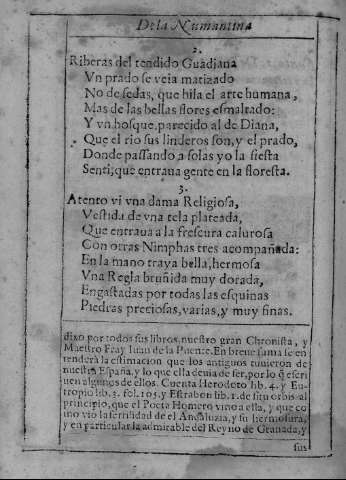 De la Numantina
2.
Riberas del tendido Guadiana
Vn prado se veia matizado
No de sedas, que hila el arte humana,
Mas de las bellas flores esmaltado:
Y vn bosque, parecido al de Diana,
Que el rio sus linderos son, y el prado,
Donde passando a solas yo la siesta
Senti, que entraua gente en la floresta.
3.
Atento vi vna dama Religiosa,
Vestida de vna tela plateada,
Que entraua a la frescura calurosa
Con otras Nimphas tres acompañada:
En la mano traya bella, hermosa
Vna Regla bruñida muy dorada,
Engastadas por todas las esquinas
Piedras preciosas, varias, y muy finas.
dixo por todos sus libros nuestro gran Chronista, y
Maestro Fray Iuan de la Puente. En breue suma se en
tenderà la estimacion que los antiguos tuuieron de
nuestra España, y lo que ella deuia de ser, por lo q̃ escri
uen algunos de ellos. Cuenta Herodoto lib. 4. y Eu-
tropio lib. 3. fol. 105. y Estrabon lib. 1. de situ orbis al
principio, que el Poeta Homero vino a ella, y que co
mo vio la fertilidad del Andaluzia, y su hermosura,
y en particular la admirable del Reyno de Granada, y
sus